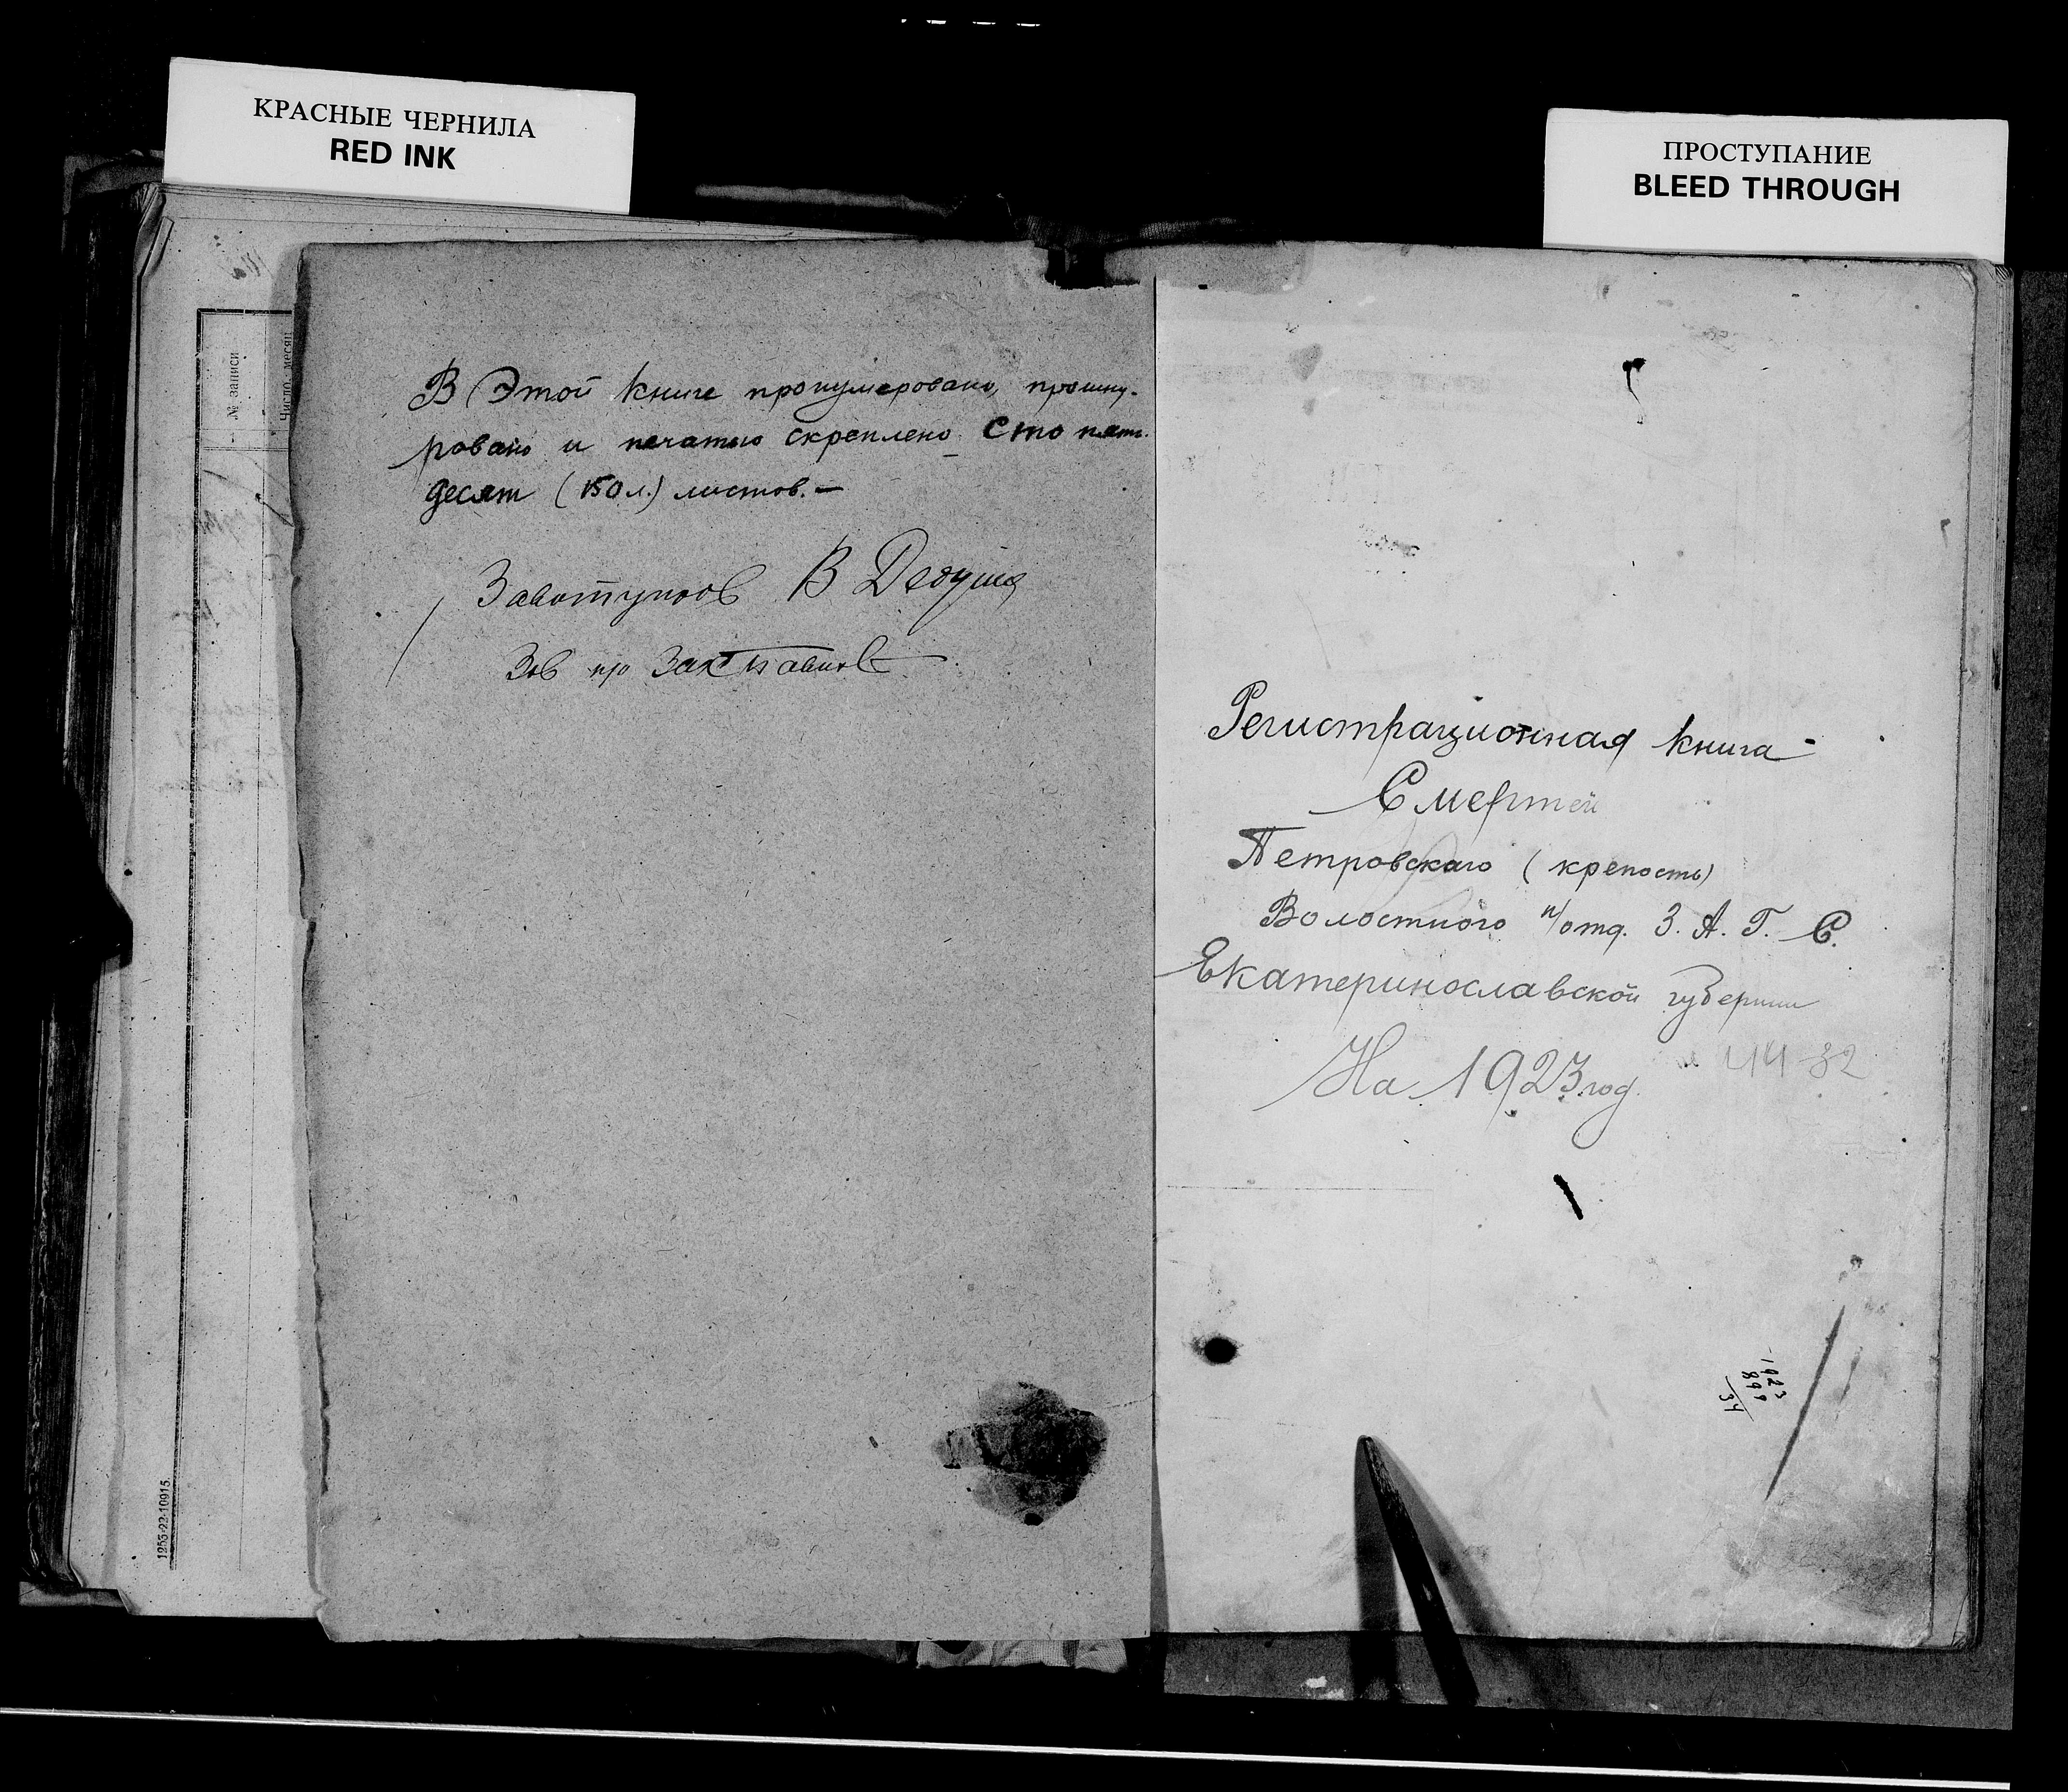 КРАСНЫЕ ЧЕРНИЛА
RED INK
ПРОСТУПАНИЕ
BLEED THROUGH
№ записи
Число, месяц
1255-22-10915.
В Этой книге пронумеровано, прошну-
ровано и печатью скреплено Сто пять-
десят (150 л.) листов.—
В
Зав
Регистрационная книга
Смертей
Петровскаго (крепость)
Волостного п/отд. З. А. Г. С.
Екатеринославской губернии
На 1923 год.
1923
899
34